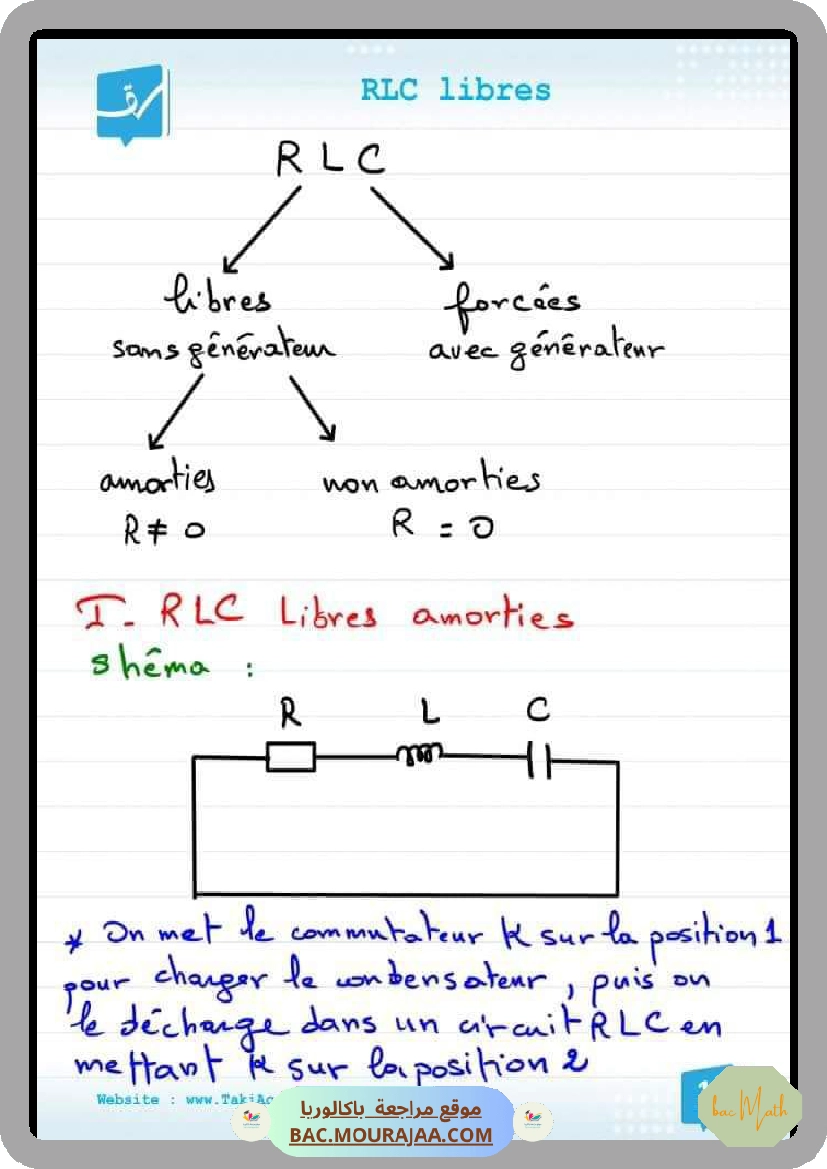 RLC libres
R L C
libres forcées
sans générateur avec générateur
amorties non amorties
R ≠ 0 R = 0
I. RLC Libres amorties
shéma :
R L C
* On met le commutateur K sur la position 1
pour charger le condensateur, puis on
le décharge dans un circuit RLC en
mettant K sur la position 2
Website : www.TakiAc
موقع مراجعة باكالوريا
BAC.MOURAJAA.COM
bac Math